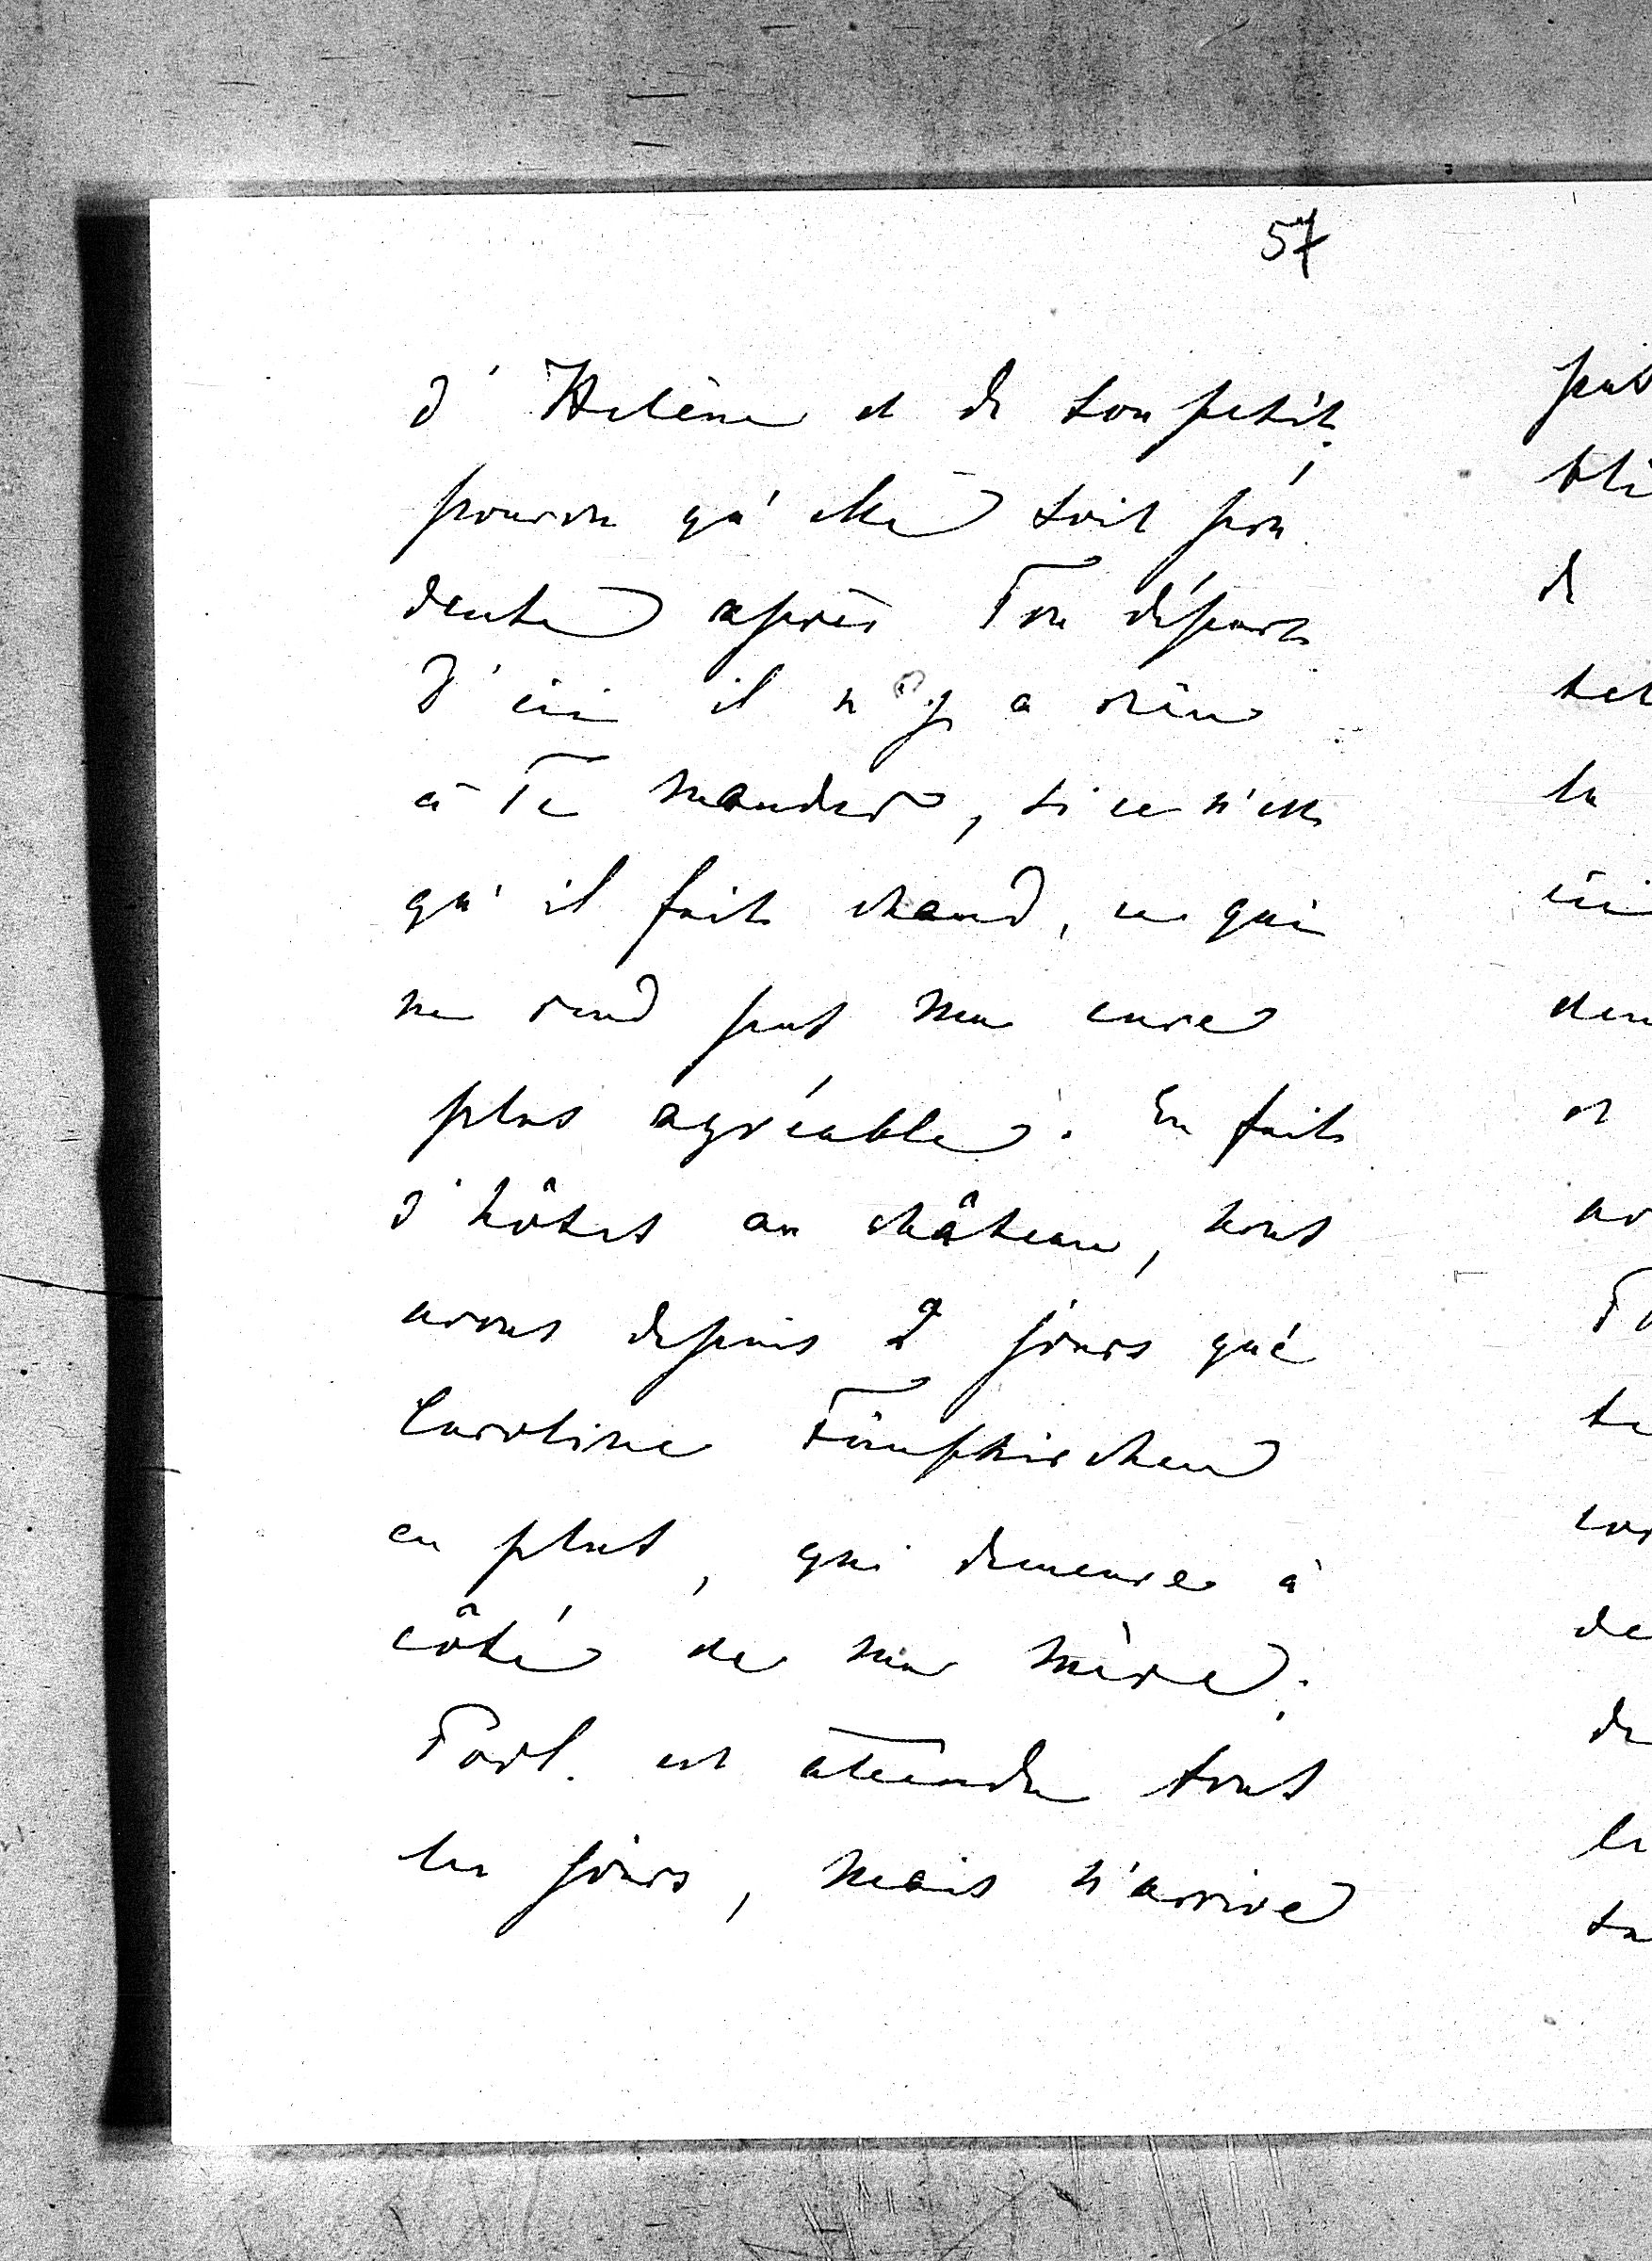 57
d'Helène et de son petit,
pourvu qu'elle soit pru
dente après Ton départ
D'ici il n'y a rien
à Te mander, si ce n'est
qu'il fait chaud, ce qui
ne rend pas ma cure
plus agréable. En fait
d'hôtes au château, nous
avons depuis 2 jours que
Caroline Fünfkirchen
en plus, qui demeure à
côté de ma mère.
est attendu tous
les jours, mais n'arrive